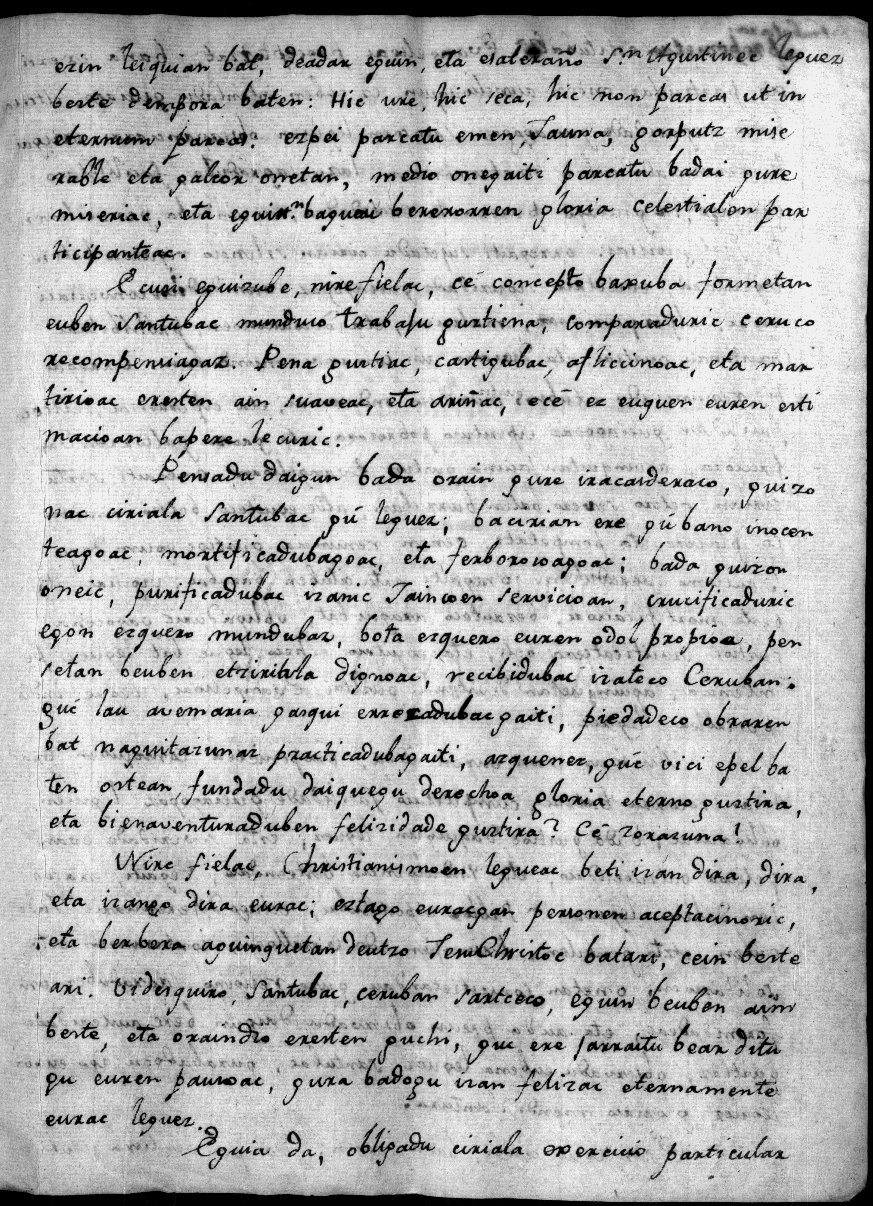 ezin leiquian bat, deadar eguin, eta esaterano S.n Agustinec leguez
beste dempora baten: Hic ure, hic seca, hic non parcas ut in
eternum parcas. ezpei parcatu emen, Jauna, gorputz mise
rable eta galcor onetan, medio onegaiti parcatu badai gure
miseriac, eta eguin baguai bererorren gloria celestialen par
ticipanteac.
Ecusi eguizube, nire fielac, cé concepto baxuba formetan
euben Santubac munduco trabaju guztiena, comparaduric ceruco
recompensiagaz. Pena guztiac, castigubac, afliccinoac, eta mar
tirioac eresten ain suaveac, eta ariñac, ece ez euquen euren esti
macioan bapere lecuric.
Pensadu daigun bada orain gure iracasderaco, guizo
nac ciriala Santubac gu leguez; bacirian ere gu bano inocen
teagoac, mortificadubagoac, eta ferborosoagoac; bada guizon
oneic, purificadubac izanic Jaincoen servicioan, crucificaduric
egon ezquero mundubaz, bota ezquero euren odol propioa, pen
setan beuben etziritela dignoac, recibidubac izateco Ceruban.
gué lau avemaria gasqui errezadubacgaiti, piedadeco obraren
bat naguitasunaz practicadubagaiti, azquenez, gué vici epel ba
ten ostean, fundadu daiquegu derechoa gloria eterno guztira,
eta bienaventuraduben felizidade guztira? Cé zorazuna!
Nire fielac, Christianismoen legueac beti izan dira, dira,
eta izango dira eurac; eztago euracgan personen aceptacinoric,
eta berbera aguinquetan deutzo Jesu Christoc batari, cein beste
ari. Videsquiro, Santubac, ceruban sartceco, eguin beuben ain
beste, eta oraindio eresten guchi, guc ere jarraitu bear ditu
gu euren pausoac, gura badogu izan felizac eternamente
eurac leguez.
Eguia da, obligadu ciriala exercicio particular